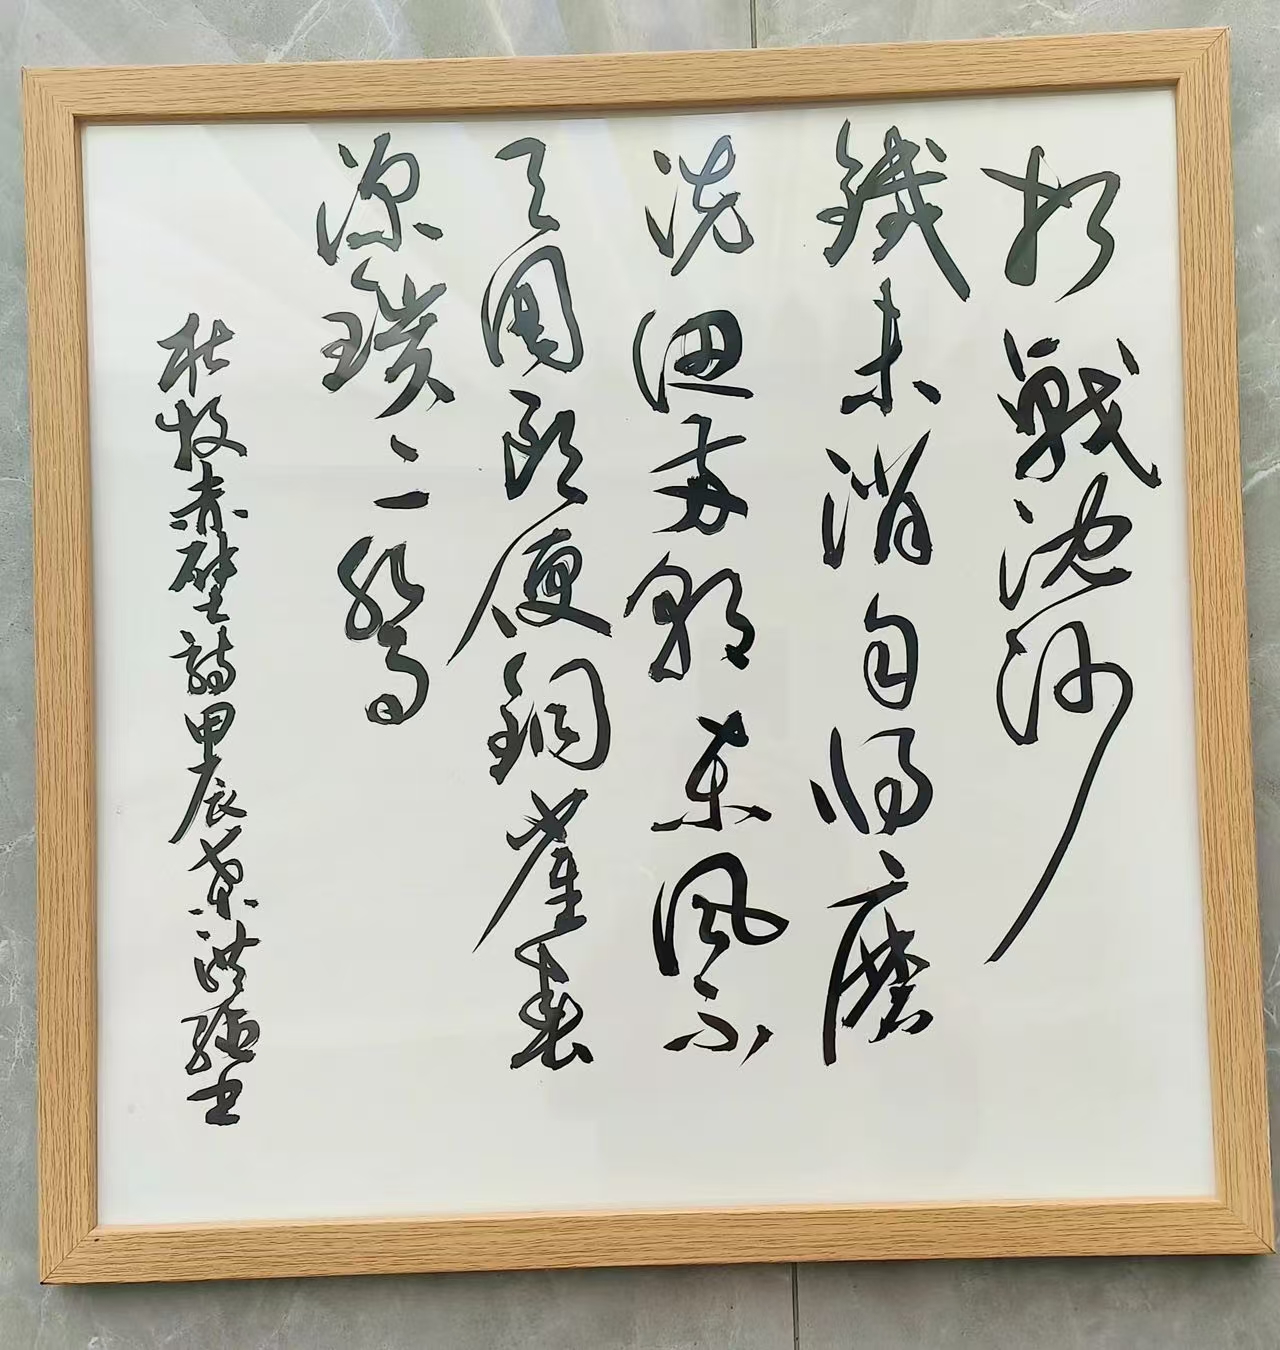 折戰沈沙
鐵未消自將磨
洗認前朝東風不
与周郎便銅雀春
深鎖二喬
杜牧赤壁詩甲辰洪書